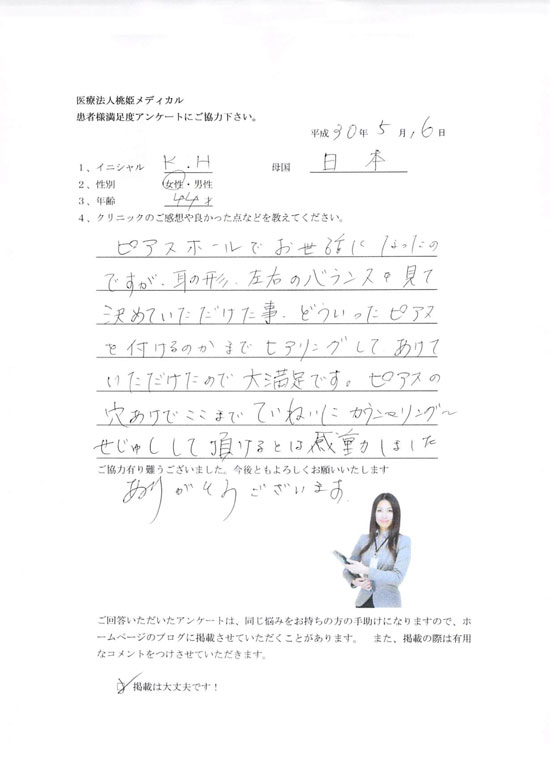 医療法人桃姫メディカル
患者様満足度アンケートにご協力下さい。
平成30年5月,6日
1、イニシャル K.H 母国 日本
2、性別 女性・男性
3、年齢 44才
4、クリニックのご感想や良かった点などを教えてください。
ピアスホールでお世話になったの
ですが、耳の形、左右のバランスを見て
決めていただけた事、どういったピアス
を付けるのかまでヒアリングして、あけて
いただけたので大満足です。ピアスの
穴あけでここまでていねいにカウンセリング〜
せじゅつして頂けるとは感動しました
ご協力有り難うございました。今後ともよろしくお願いいたします
ありがとうございます。
ご回答いただいたアンケートは、同じ悩みをお持ちの方の手助けになりますので、ホ
ームページのブログに掲載させていただくことがあります。 また、掲載の際は有用
なコメントをつけさせていただきます。
☑掲載は大丈夫です！